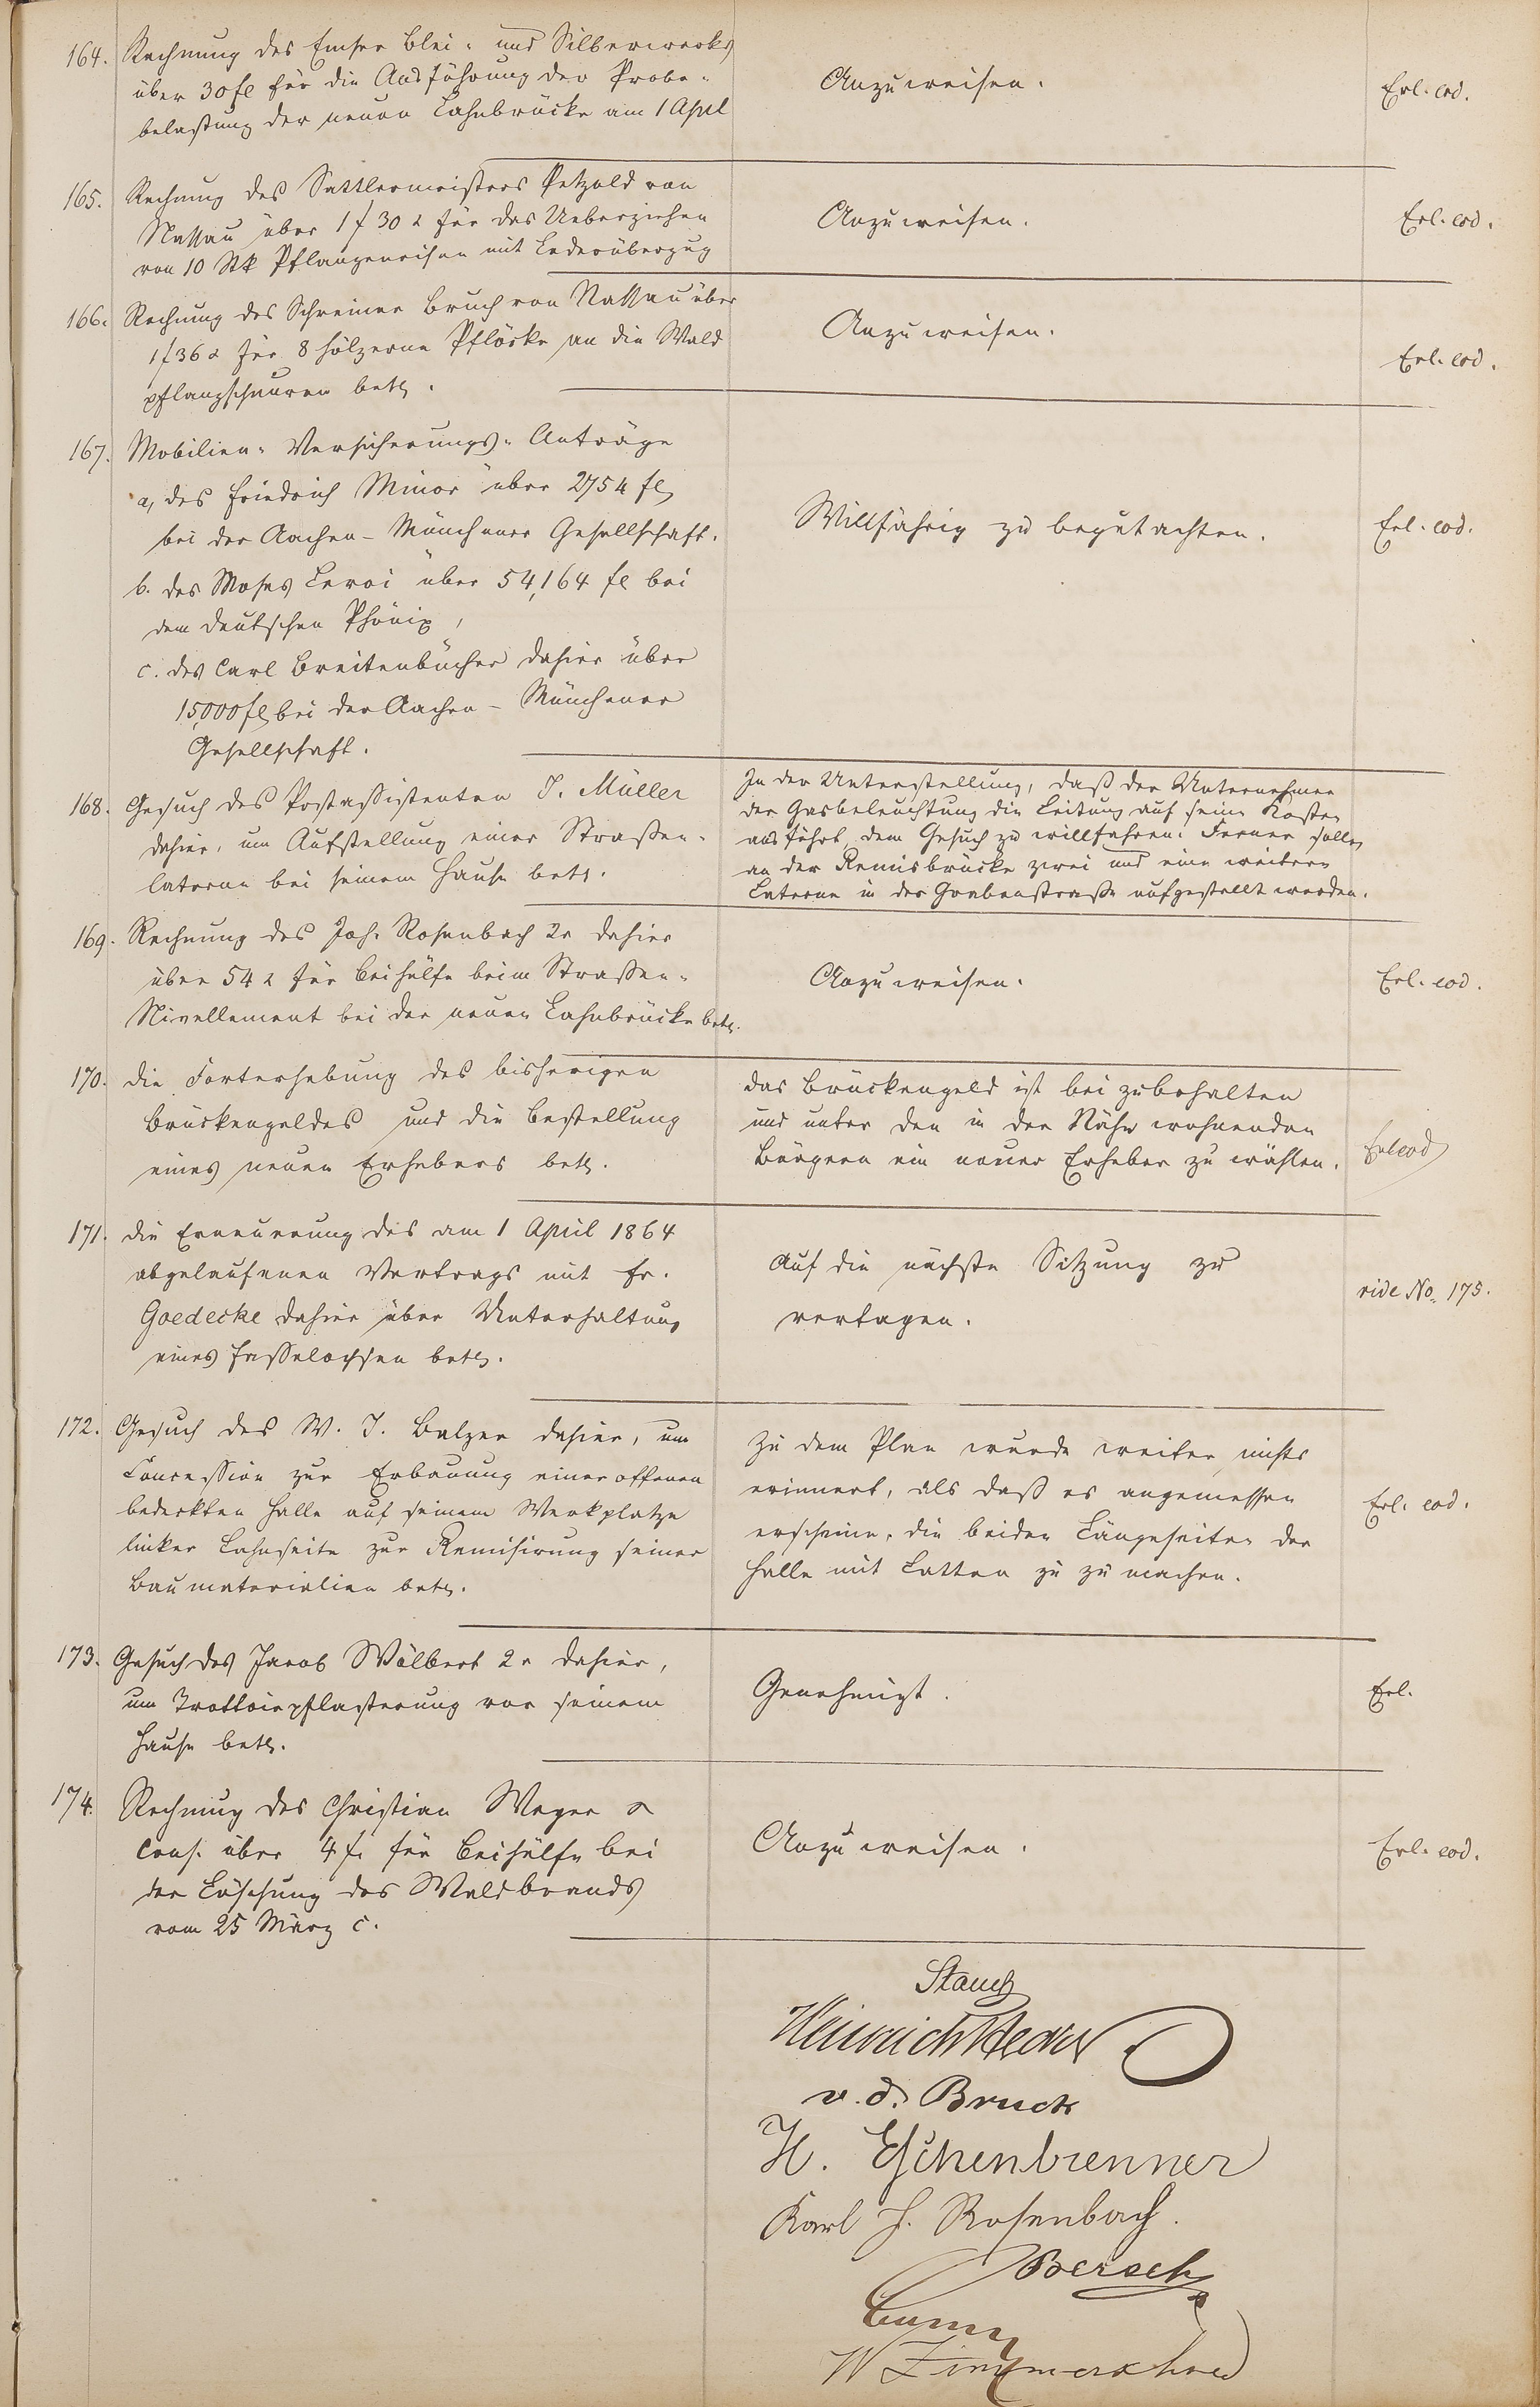 164. Rechnung des Emser Blei- und Silberwerks
über 30 fl für die Ausführung der Probe-
belastung der neuen Lahnbrücke am 1 April
Anzuweisen.
Erl. eod.
165. Rechnung des Sattlermeisters Petzold von
Nassau über 1 f 30 x für das Ueberziehen
von 10 Stk Pflanzeneisen mit Lederüberzug
Anzuweisen.
Erl. eod.
166. Rechnung des Schreiner Bruch von Nassau über
1 f 36 x für 8 hölzerne Pflöcke an die Wald
pflanzschnuren betr.
Anzuweisen.
Erl. eod.
167. Mobilien-Versicherungs-Anträge
a, des Friedrich Minor über 2754 fl
bei der Aachen-Münchener Gesellschaft.
b. des Moses Leroi über 54,164 fl bei
dem deutschen Phönix,
c. des Carl Breitenbücher dahier über
15,000 fl bei der Aachen-Münchener
Gesellschaft.
Willfährig zu begutachten.
Erl. eod.
168. Gesuch des Postassistenten J. Müller
dahier, um Aufstellung einer Straßen-
laterne bei seinem Hause betr.
In der Unterstellung, daß der Unternehmer
der Gasbeleuchtung die Leitung auf seine Kosten
ausführt, dem Gesuch zu willfahren. Ferner sollen
an der Remisbrücke zwei und eine weitere
Laterne in der Grabenstraße aufgestellt werden.
169. Rechnung des Joh. Rosenbach 2r dahier
über 54 x für Beihülfe beim Straßen-
Nivellement bei der neuen Lahnbrücke betr.
Anzuweisen.
Erl. eod.
170. die Forterhebung des bisherigen
Brückengeldes und die Bestellung
eines neuen Erhebers betr.
das Brückengeld ist bei zubehalten
und unter den in der Nähe wohnenden
Bürgern ein neuer Erheber zu wählen.
Erl eod
171. die Erneuerung des am 1 April 1864
abgelaufenen Vertrags mit Fr.
Goedecke dahier über Unterhaltung
eines Fasselochsen betr.
Auf die nächste Sitzung zu
vertagen.
vide No. 175.
172. Gesuch des W. J. Balzer dahier, um
Concession zur Erbauung einer offenen
bedeckten Halle auf seinem Werkplatze
linker Lahnseite zur Remisirung seiner
Baumaterialien betr.
Zu dem Plan wurde weiter nichts
erinnert, als daß es angemessen
erscheine, die beiden Längeseiten der
Halle mit Latten zu zu machen.
Erl. eod.
173. Gesuch des Jacob Wölbert 2r dahier,
um Trottoirpflasterung vor seinem
Hause betr.
Genehmigt.
Erl.
174. Rechnung des Christian Weger &
Cons. über 4 f. für Beihülfe bei
der Löschung des Waldbrands
vom 25 März c.
Anzuweisen.
Erl. eod.
Stauch
Heinrich
v. d. Bruck
H. Eschenbrenner
Karl H. Rosenbach.
Boersch
W Zimmerschied